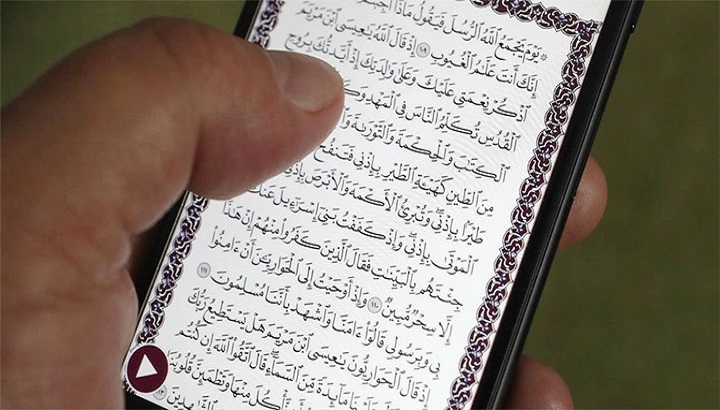 ۞ يَوْمَ يَجْمَعُ ٱللَّهُ ٱلرُّسُلَ فَيَقُولُ مَاذَآ
إِنَّكَ أَنتَ عَلَّٰمُ ٱلْغُيُوبِ ١٠٩ إِذْ قَالَ ٱللَّهُ يَٰعِيسَى ٱبْنَ مَرْيَمَ
ٱذْكُرْ نِعْمَتِي عَلَيْكَ وَعَلَىٰ وَٰلِدَتِكَ إِذْ أَيَّدتُّكَ بِرُوحِ
ٱلْقُدُسِ تُكَلِّمُ ٱلنَّاسَ فِي ٱلْمَهْدِ
ٱلْكِتَٰبَ وَٱلْحِكْمَةَ وَٱلتَّوْرَىٰةَ
مِنَ ٱلطِّينِ كَهَيْـَٔةِ ٱلطَّيْرِ بِإِذْنِي فَتَنفُخُ
طَيْرًۢا بِإِذْنِي وَتُبْرِئُ ٱلْأَكْمَهَ وَٱلْأَبْرَصَ بِإِذْنِي
ٱلْمَوْتَىٰ بِإِذْنِي وَإِذْ كَفَفْتُ بَنِيٓ إِسْرَٰٓءِيلَ عَنكَ
جِئْتَهُم بِٱلْبَيِّنَٰتِ فَقَالَ ٱلَّذِينَ كَفَرُوا۟ مِنْهُمْ إِنْ هَٰذَآ
إِلَّا سِحْرٌ مُّبِينٌ ١١٠ وَإِذْ أَوْحَيْتُ إِلَى ٱلْحَوَارِيِّـۧنَ أَنْ ءَامِنُوا۟
بِي وَبِرَسُولِي قَالُوٓا۟ ءَامَنَّا وَٱشْهَدْ بِأَنَّنَا مُسْلِمُونَ ١١١
إِذْ قَالَ ٱلْحَوَارِيُّونَ يَٰعِيسَى ٱبْنَ مَرْيَمَ هَلْ يَسْتَطِيعُ رَبُّكَ
مَآئِدَةً مِّنَ ٱلسَّمَآءِ قَالَ ٱتَّقُوا۟ ٱللَّهَ إِن كُنتُم
نَّأْكُلَ مِنْهَا وَتَطْمَئِنَّ قُلُوبُنَا